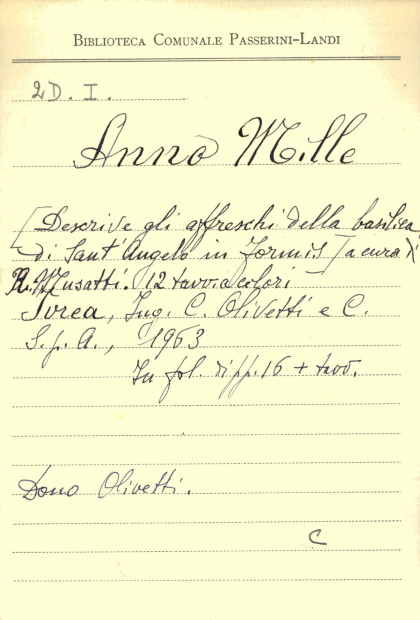 BIBLIOTECA COMUNALE PASSERINI-LANDI
2D. I.
Anno Mille
[Descrive gli affreschi della basilica
di Sant'Angelo in Formis] a cura di
R. Musatti. 12 tavv. a colori
Ivrea, Ing. C. Olivetti e C.
S.p.A., 1963
In fol. di pp. 16 + tavv.
Dono Olivetti.
C